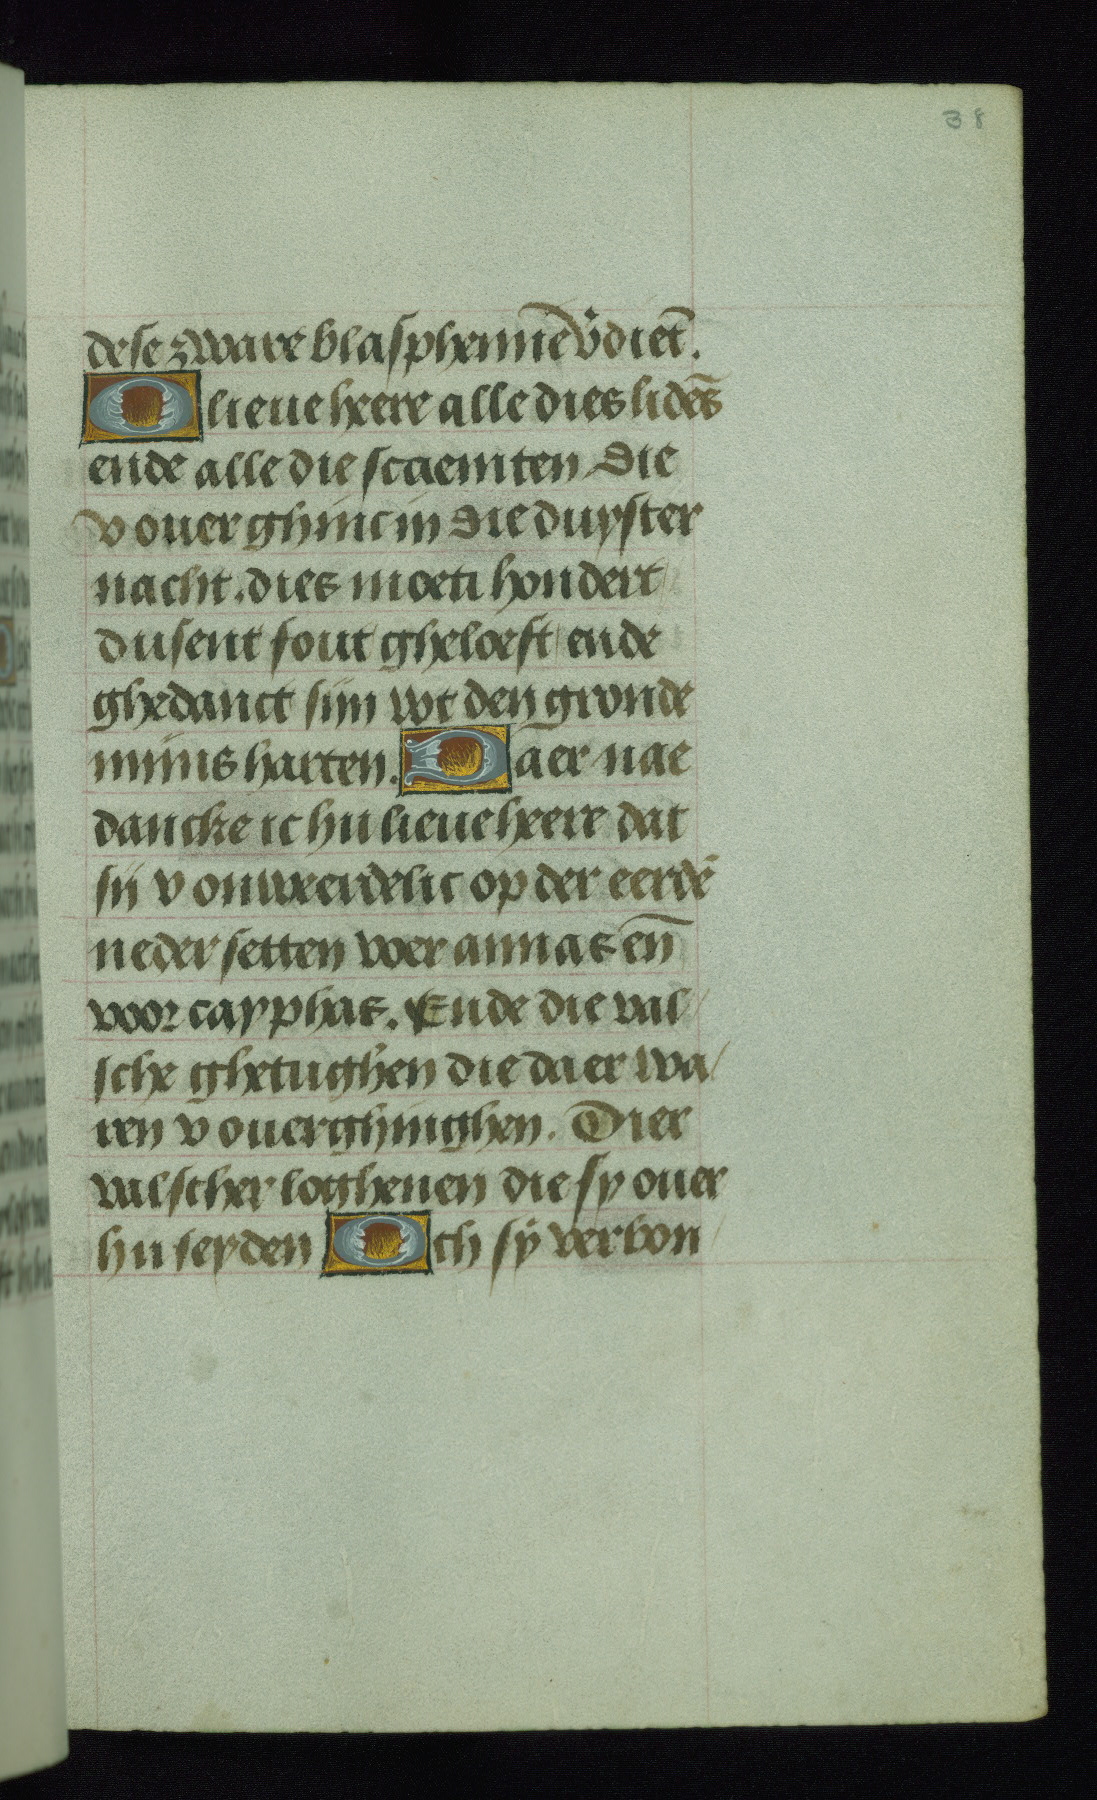 38
dese zware blasphemiē v̄diēt.
O lieue heere alle dies lidēs
ende alle die scaemten die
v ouerghinc in die duyster
nacht. dies moeti hondert
dusent fout gheloeft ende
ghedanct sijn wt den gronde
mijns harten. Daer nae
dancke ic hu lieue heere dat
sij v onweerdelic op der eerdē
neder setten voer annas en̄
voor cayphas. Ende die val
sche ghetughen die daer wa/
ren v ouerghinghen. Dier
valscher loghenen die sy ouer
hu seyden Och sÿ verbon/